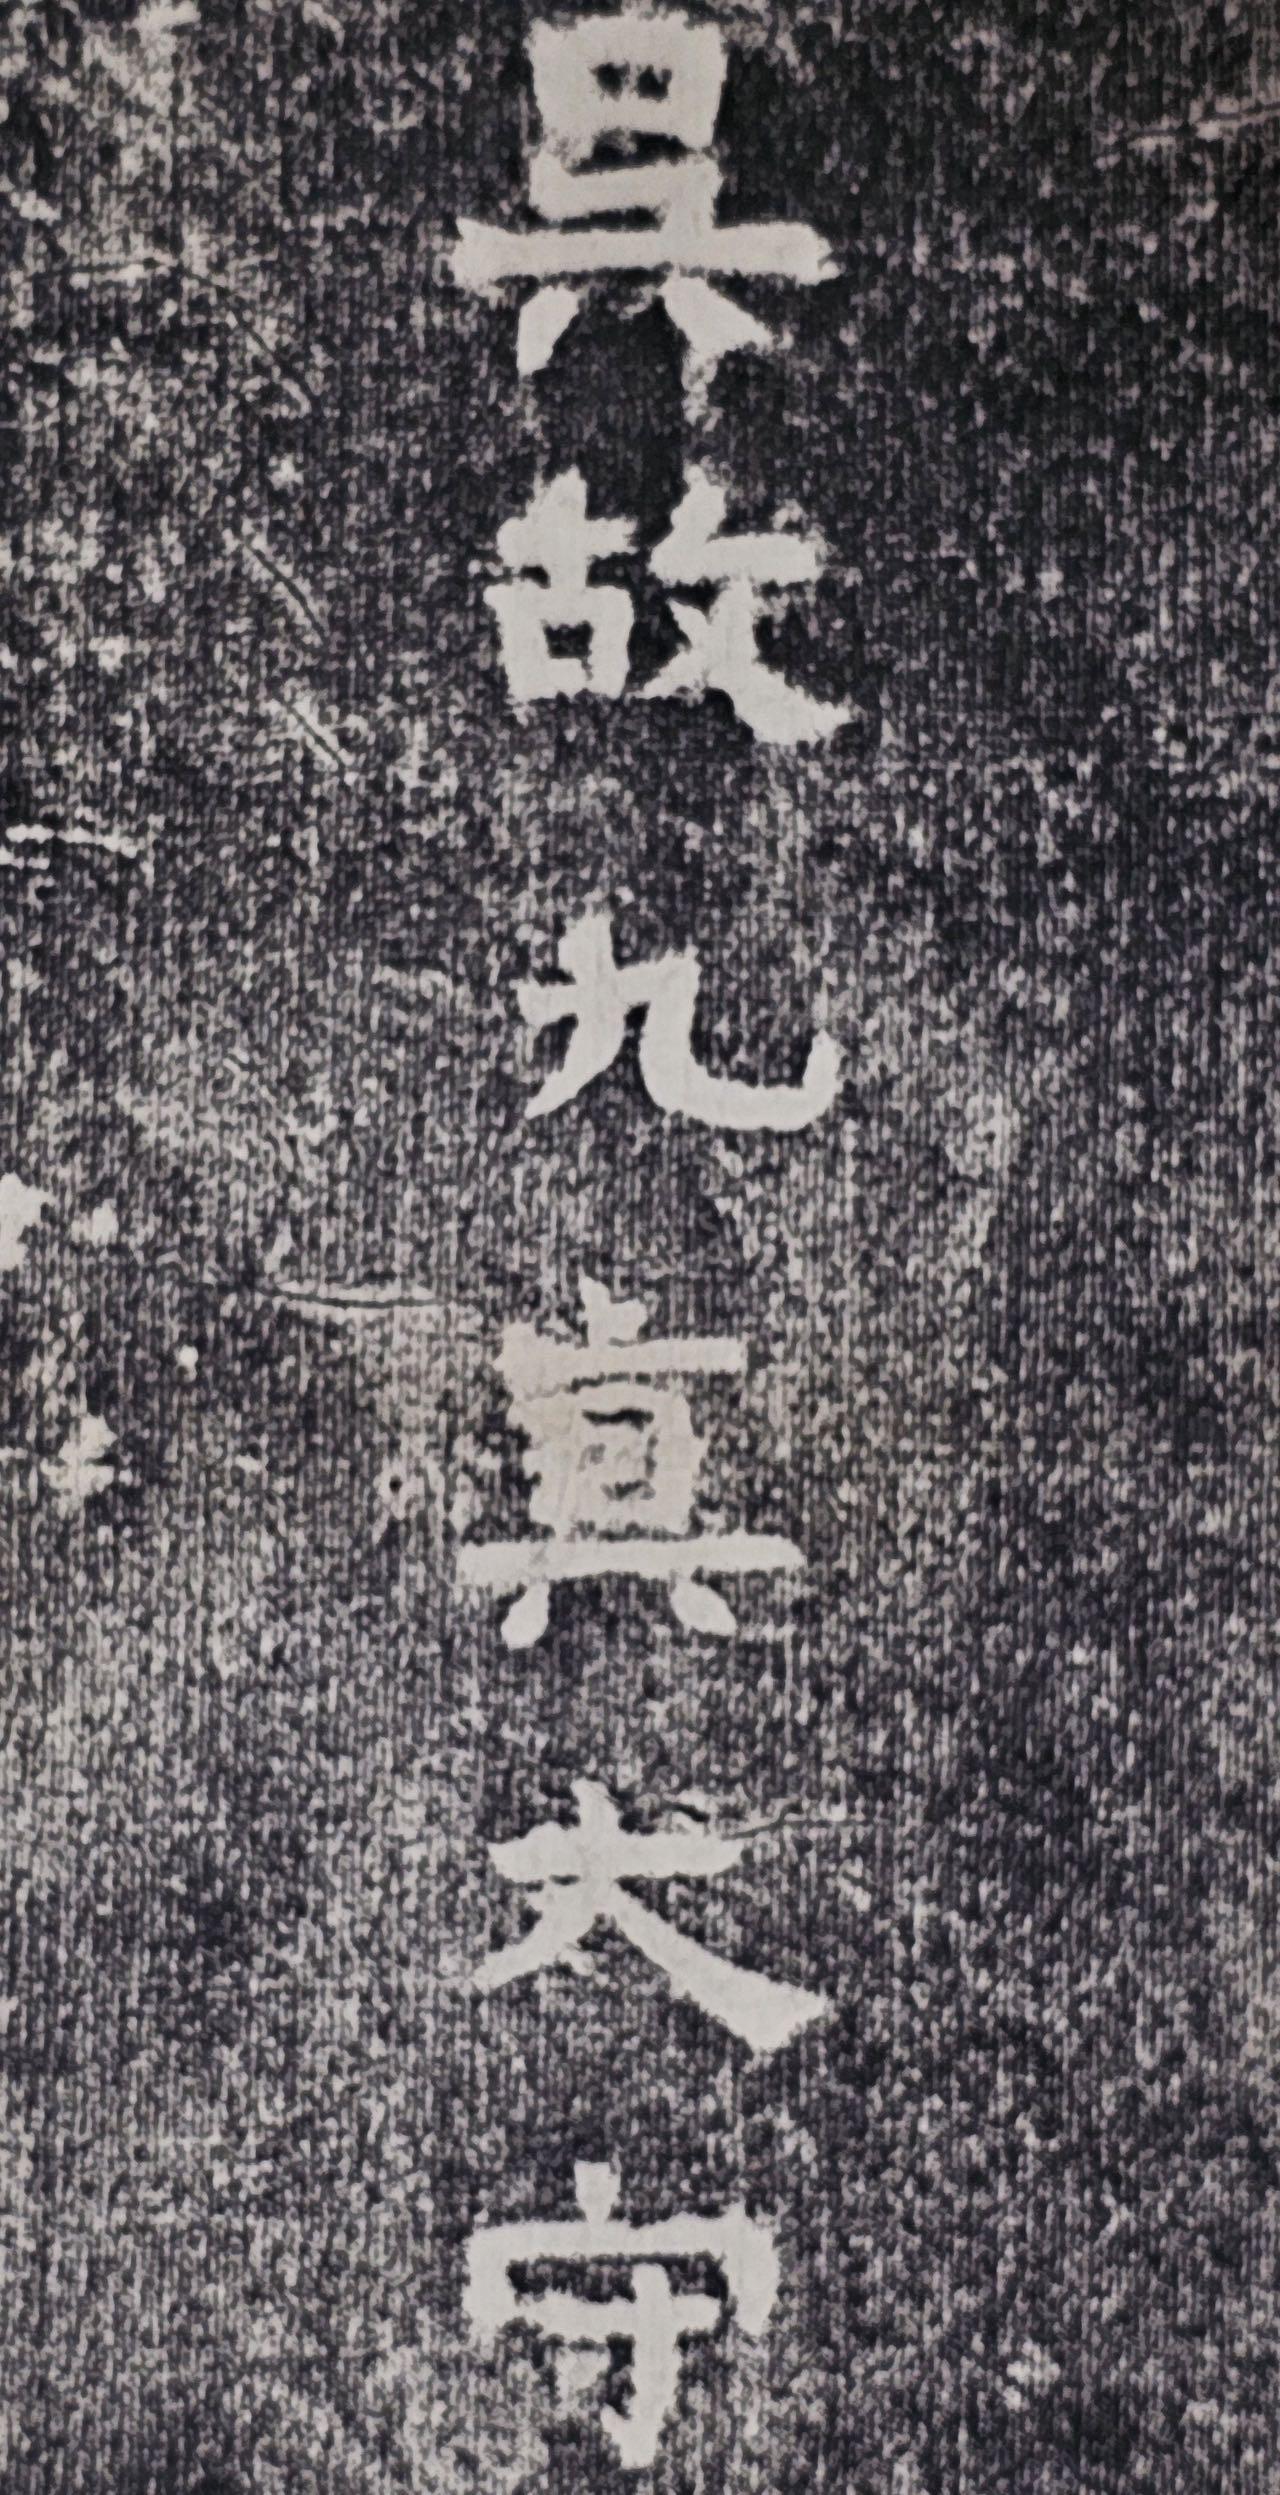 吳故九真太守